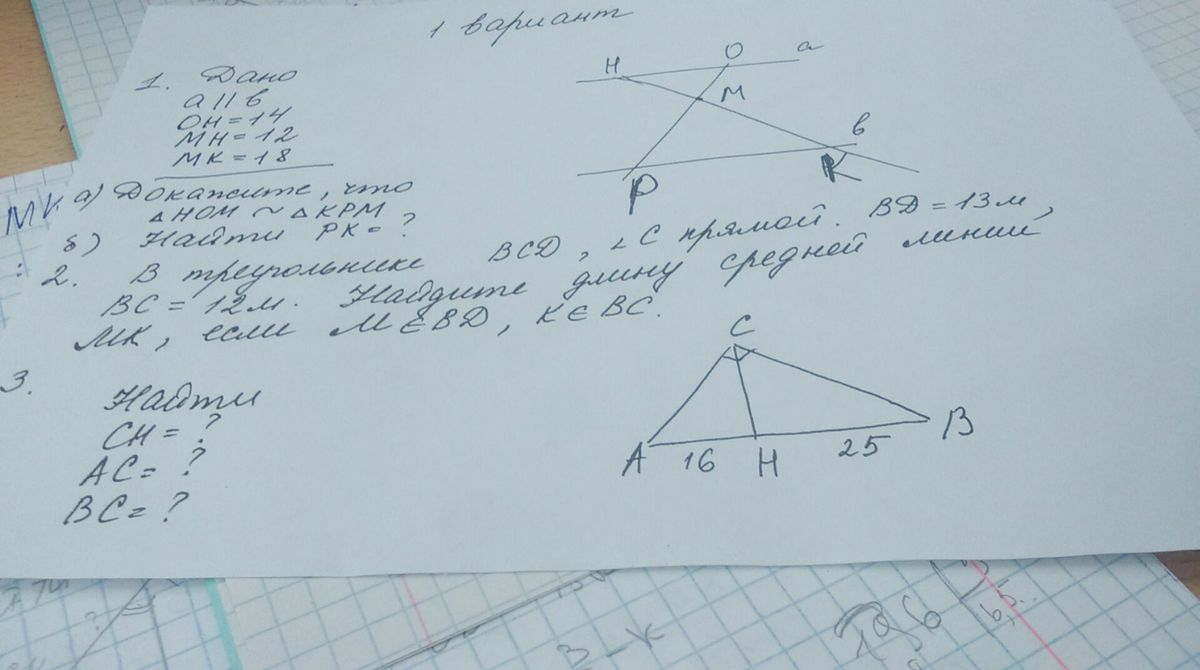 1 вариант
1. Дано
a || b
OH = 14
MH = 12
MK = 18
а) Докажите, что
△HOM ~ △KPM
б) Найти PK = ?
H O a
M
b
P K
2. В треугольнике BCD, ∠C прямой. BD = 13 м,
BC = 12 м. Найдите длину средней линии
MK, если M ∈ BD, K ∈ BC.
3.
Найти
CH = ?
AC = ?
BC = ?
C
A 16 H 25 B